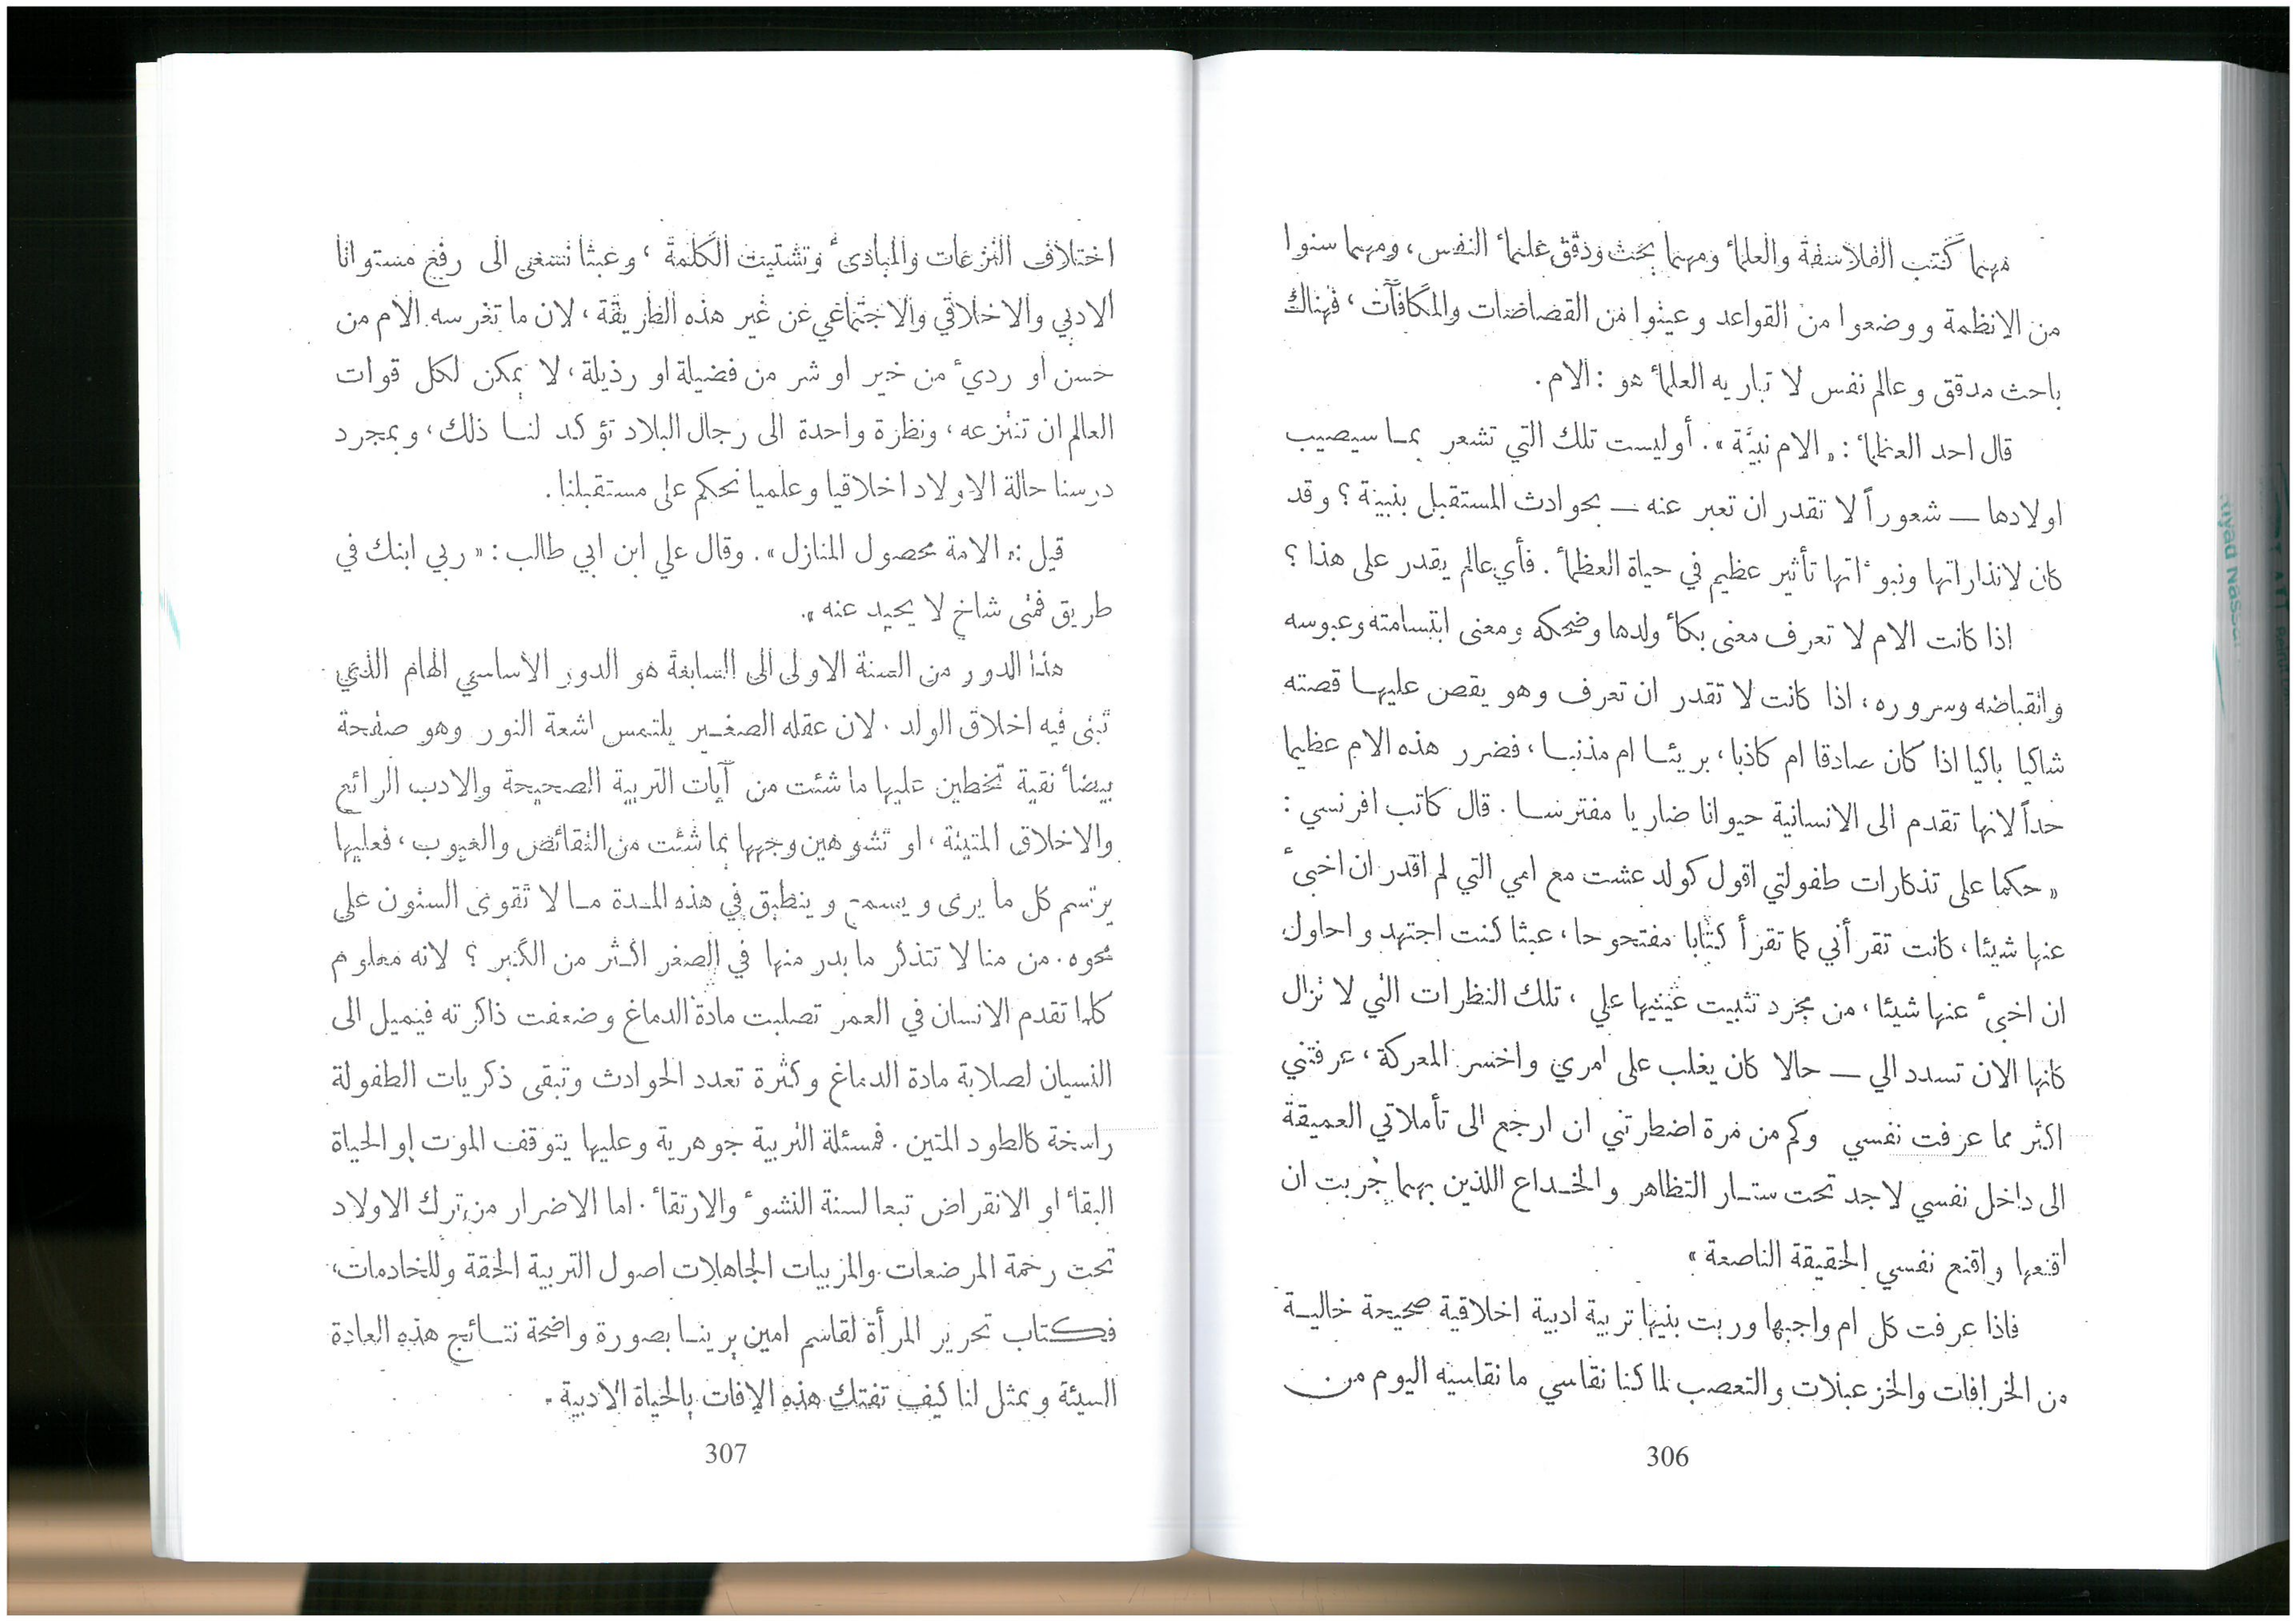 مهما كتب الفلاسفة والعلماء ومهما بحث ودقق علماء النفس، ومهما سنوا
من الانظمة ووضعوا من القواعد وعينوا من القصاصات والمكافآت، فهناك
باحث مدقق وعالم نفس لا تباريه العلماء هو : الام.
قال احد العظماء : «الام نبيَّة». أوليست تلك التي تشعر بما سيصيب
اولادها — شعوراً لا تقدر ان تعبر عنه — بحوادث المستقبل بنبية ؟ وقد
كان لانذاراتها ونبوءاتها تأثير عظيم في حياة العظماء. فأي عالم يقدر على هذا ؟
اذا كانت الام لا تعرف معنى بكاء ولدها وضحكه ومعنى ابتسامته وعبوسه
وانقباضه وسروره، اذا كانت لا تقدر ان تعرف وهو يقص عليها قصته
شاكيا باكيا اذا كان صادقا ام كاذبا، بريئا ام مذنبا، فضرر هذه الام عظيما
حداً لانها تقدم الى الانسانية حيوانا ضاريا مفترسا. قال كاتب افرنسي :
« حكما على تذكارات طفولتي اقول كولد عشت مع امي التي لم اقدر ان اخبىء
عنها شيئا، كانت تقرأني كما تقرأ كتابا مفتحوحا، عبثا كنت اجتهد واحاول
ان اخبىء عنها شيئا، من مجرد تثبيت عينيها علي، تلك النظرات التي لا تزال
كانها الان تسدد الي — حالا كان يغلب على امري واخسر المعركة، عرفتني
اكثر مما عرفت نفسي وكم من مرة اضطرتني ان ارجع الى تأملاتي العميقة
الى داخل نفسي لاجد تحت ستار التظاهر والخداع اللذين بهما جربت ان
اقنعها واقنع نفسي الحقيقة الناصعة »
فاذا عرفت كل ام واجبها وربت بنيها تربية ادبية اخلاقية صحيحة خالية
من الخرافات والخزعبلات والتعصب لما كنا نقاسي ما نقاسيه اليوم من
306
اختلاف النزعات والمبادىء وتشتيت الكلمة، وعبثا نسعى الى رفع مستوانا
الادبي والاخلاقي والاجتماعي عن غير هذه الطريقة، لان ما تغرسه الام من
حسن او رديء من خير او شر من فضيلة او رذيلة، لا يمكن لكل قوات
العالم ان تنتزعه، ونظرة واحدة الى رجال البلاد تؤكد لنا ذلك، وبمجرد
درسنا حالة الاولاد اخلاقيا وعلميا نحكم على مستقبلنا.
قيل : «الامة محصول المنازل». وقال علي ابن ابي طالب : « ربي ابنك في
طريق فمتى شاخ لا يحيد عنه ».
هذا الدور من السنة الاولى الى السابعة هو الدور الاساسي الهام الذي
تبنى فيه اخلاق الولد. لان عقله الصغير يلتمس اشعة النور وهو صفحة
بيضاء نقية تخطين عليها ما شئت من آيات التربية الصحيحة والادب الرائع
والاخلاق المتينة، او تشوهين وجهها بما شئت من النقائص والعيوب، فعليها
يرتسم كل ما يرى ويسمع وينطبق في هذه المدة ما لا تقوى السنون على
محوه. من منا لا تتذكر ما بدر منها في الصغر اكثر من الكبر ؟ لانه معلوم
كلما تقدم الانسان في العمر تصلبت مادة الدماغ وضعفت ذاكرته فيميل الى
النسيان لصلابة مادة الدماغ وكثرة تعدد الحوادث وتبقى ذكريات الطفولة
راسخة كالطود المتين. فمسئلة التربية جوهرية وعليها يتوقف الموت او الحياة
البقاء او الانقراض تبعا لسنة النشوء والارتقاء. اما الاضرار من ترك الاولاد
تحت رحمة المرضعات والمربيات الجاهلات اصول التربية الحقة وللخادمات،
فكتاب تحرير المرأة لقاسم امين يرينا بصورة واضحة نتائج هذه العادة
السيئة ويمثل لنا كيف تفتك هذه الافات بالحياة الادبية.
307